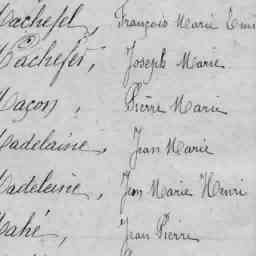 Machefel, François Marie Emi
Machefer, Joseph Marie
Maçon, Pierre Marie
Madelaine, Jean Marie
Madeleine, Jean Marie Henri
Mahé, Jean Pierre